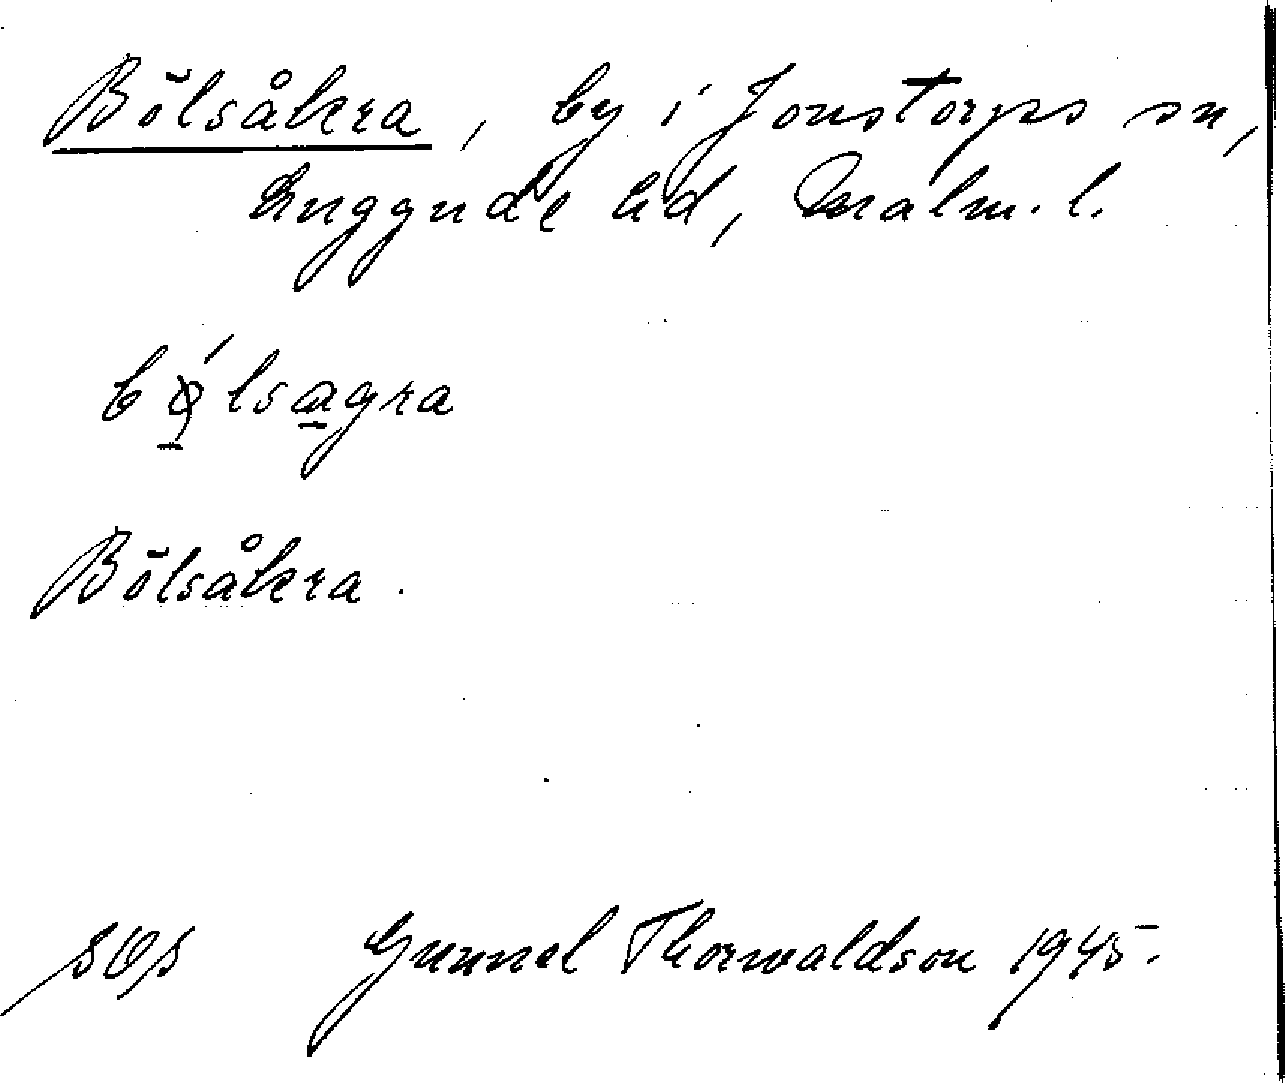 Bölsåkra, by i Jonstorps sn,
Luggude hd, Malm. l.
bǿ̱lsa̱gra
Bölsåkra.
SOS Gunnel Thorwaldson 1945.